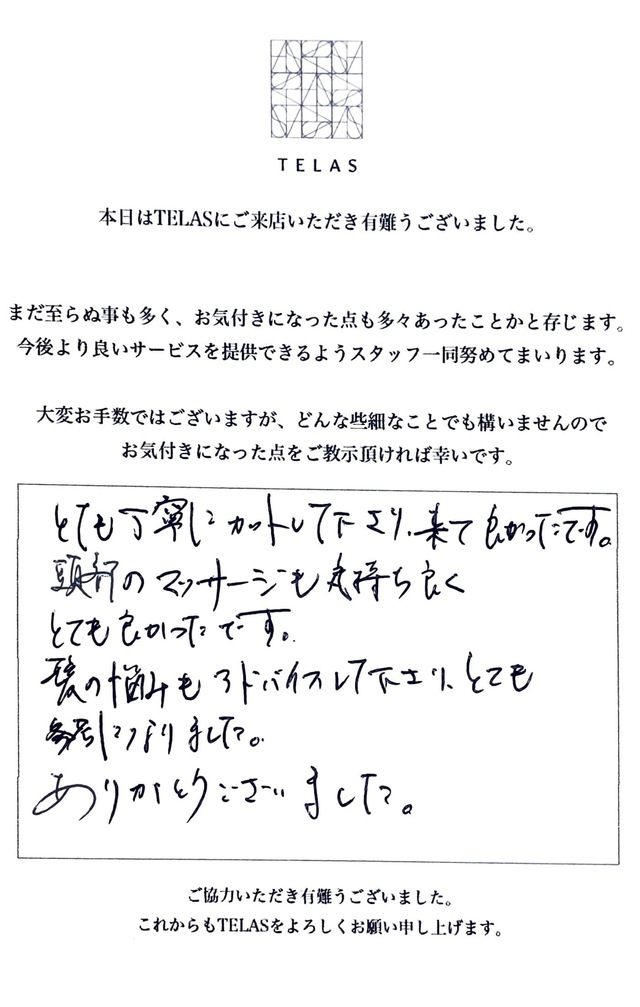 TELAS
本日はTELASにご来店いただき有難うございました。
まだ至らぬ事も多く、お気付きになった点も多々あったことかと存じます。
今後より良いサービスを提供できるようスタッフ一同努めてまいります。
大変お手数ではございますが、どんな些細なことでも構いませんので
お気付きになった点をご教示頂ければ幸いです。
とても丁寧にカットして下さり、来て良かったです。
頭部のマッサージも気持ち良く
とても良かったです。
髪の悩みもアドバイスして下さり、とても
参考になりました。
ありがとうございました。
ご協力いただき有難うございました。
これからもTELASをよろしくお願い申し上げます。